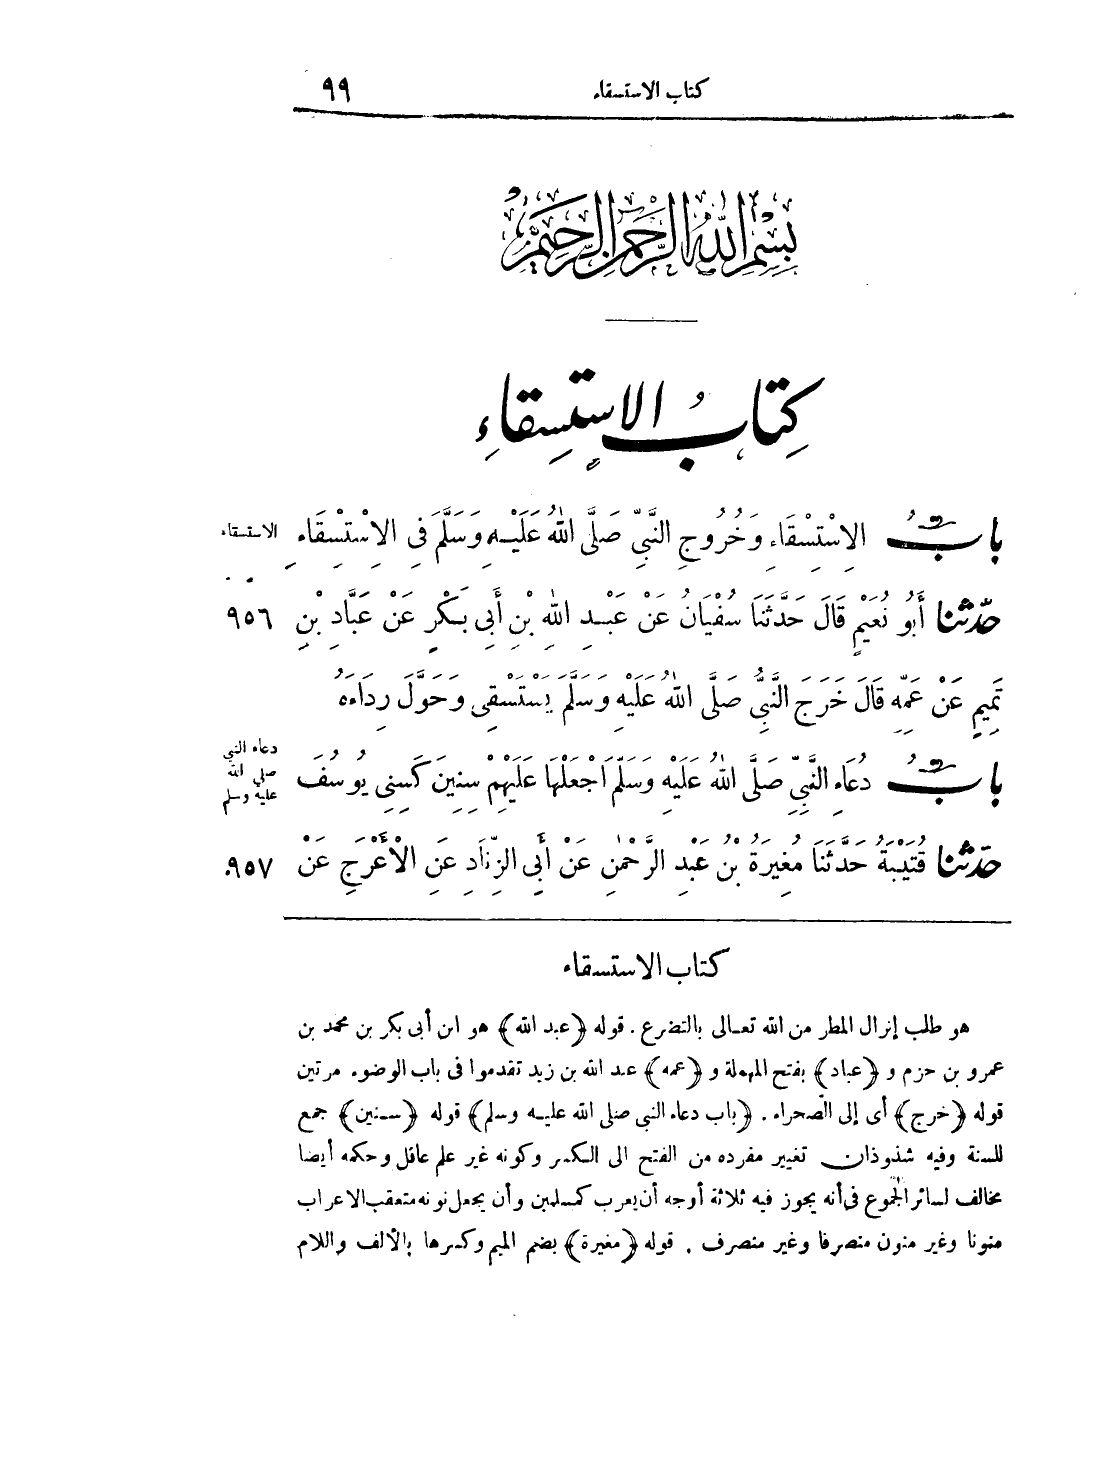 كتاب الاستسقاء ٩٩
بِسْمِ اللهِ الرَّحْمٰنِ الرَّحِيْمِ
كِتَابُ الاسْتِسْقَاءِ
بابُ الِاسْتِسْقَاءِ وَخُرُوجِ النَّبِيِّ صَلَّى اللهُ عَلَيْهِ وَسَلَّمَ فِي الِاسْتِسْقَاءِ
الاستسقاء
حَدَّثَنَا أَبُو نُعَيْمٍ قَالَ حَدَّثَنَا سُفْيَانُ عَنْ عَبْدِ اللهِ بْنِ أَبِي بَكْرٍ عَنْ عَبَّادِ بْنِ ٩٥٦
تَمِيمٍ عَنْ عَمِّهِ قَالَ خَرَجَ النَّبِيُّ صَلَّى اللهُ عَلَيْهِ وَسَلَّمَ يَسْتَسْقِي وَحَوَّلَ رِدَاءَهُ
بابُ دُعَاءِ النَّبِيِّ صَلَّى اللهُ عَلَيْهِ وَسَلَّمَ اجْعَلْهَا عَلَيْهِمْ سِنِينَ كَسِنِي يُوسُفَ
دعاء النبي
صلى الله
عليه وسلم
حَدَّثَنَا قُتَيْبَةُ حَدَّثَنَا مُغِيرَةُ بْنُ عَبْدِ الرَّحْمٰنِ عَنْ أَبِي الزِّنَادِ عَنِ الْأَعْرَجِ عَنْ ٩٥٧
كتاب الاستسقاء
هو طلب إنزال المطر من الله تعالى بالتضرع . قوله ﴿عبد الله﴾ هو ابن أبى بكر بن محمد بن
عمرو بن حزم و ﴿عباد﴾ بفتح المهملة و ﴿عمه﴾ عبد الله بن زيد تقدموا فى باب الوضوء مرتين
قوله ﴿خرج﴾ أى إلى الصحراء . ﴿باب دعاء النبى صلى الله عليه وسلم﴾ قوله ﴿سنين﴾ جمع
للسنة وفيه شذوذان تغيير مفرده من الفتح الى الكسر وكونه غير علم عاقل وحكمه أيضا
مخالف لسائر الجموع فى أنه يجوز فيه ثلاثة أوجه أن يعرب كمسلمين وأن يجعل نونه متعقب الاعراب
منونا وغير منون منصرفا وغير منصرف . قوله ﴿مغيرة﴾ بضم الميم وكسرها بالألف واللام